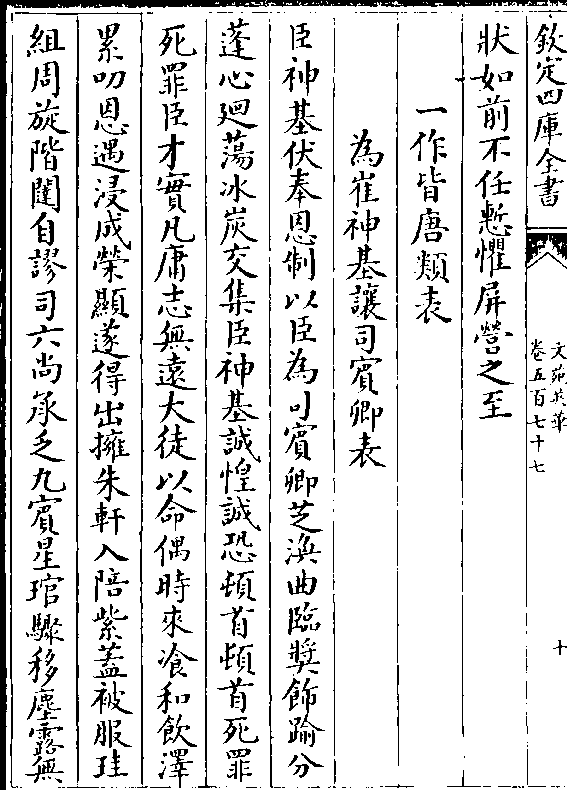 欽定四庫全書
文苑英華
卷五百七十七
十
狀如前不任慙懼屏營之至
一作皆唐類表
為崔神基讓司賓卿表
臣神基伏奉恩制以臣為司賓卿芝渙曲臨獎飾踰分
蓬心迴蕩冰炭交集臣神基誠惶誠恐頓首頓首死罪
死罪臣才實凡庸志無遠大徒以命偶時來飡和飲澤
累叨恩遇浸成榮顯遂得出擁朱軒入陪紫蓋被服珪
組周旋階闥自謬司六尚承乏九賓星琯驟移塵露無